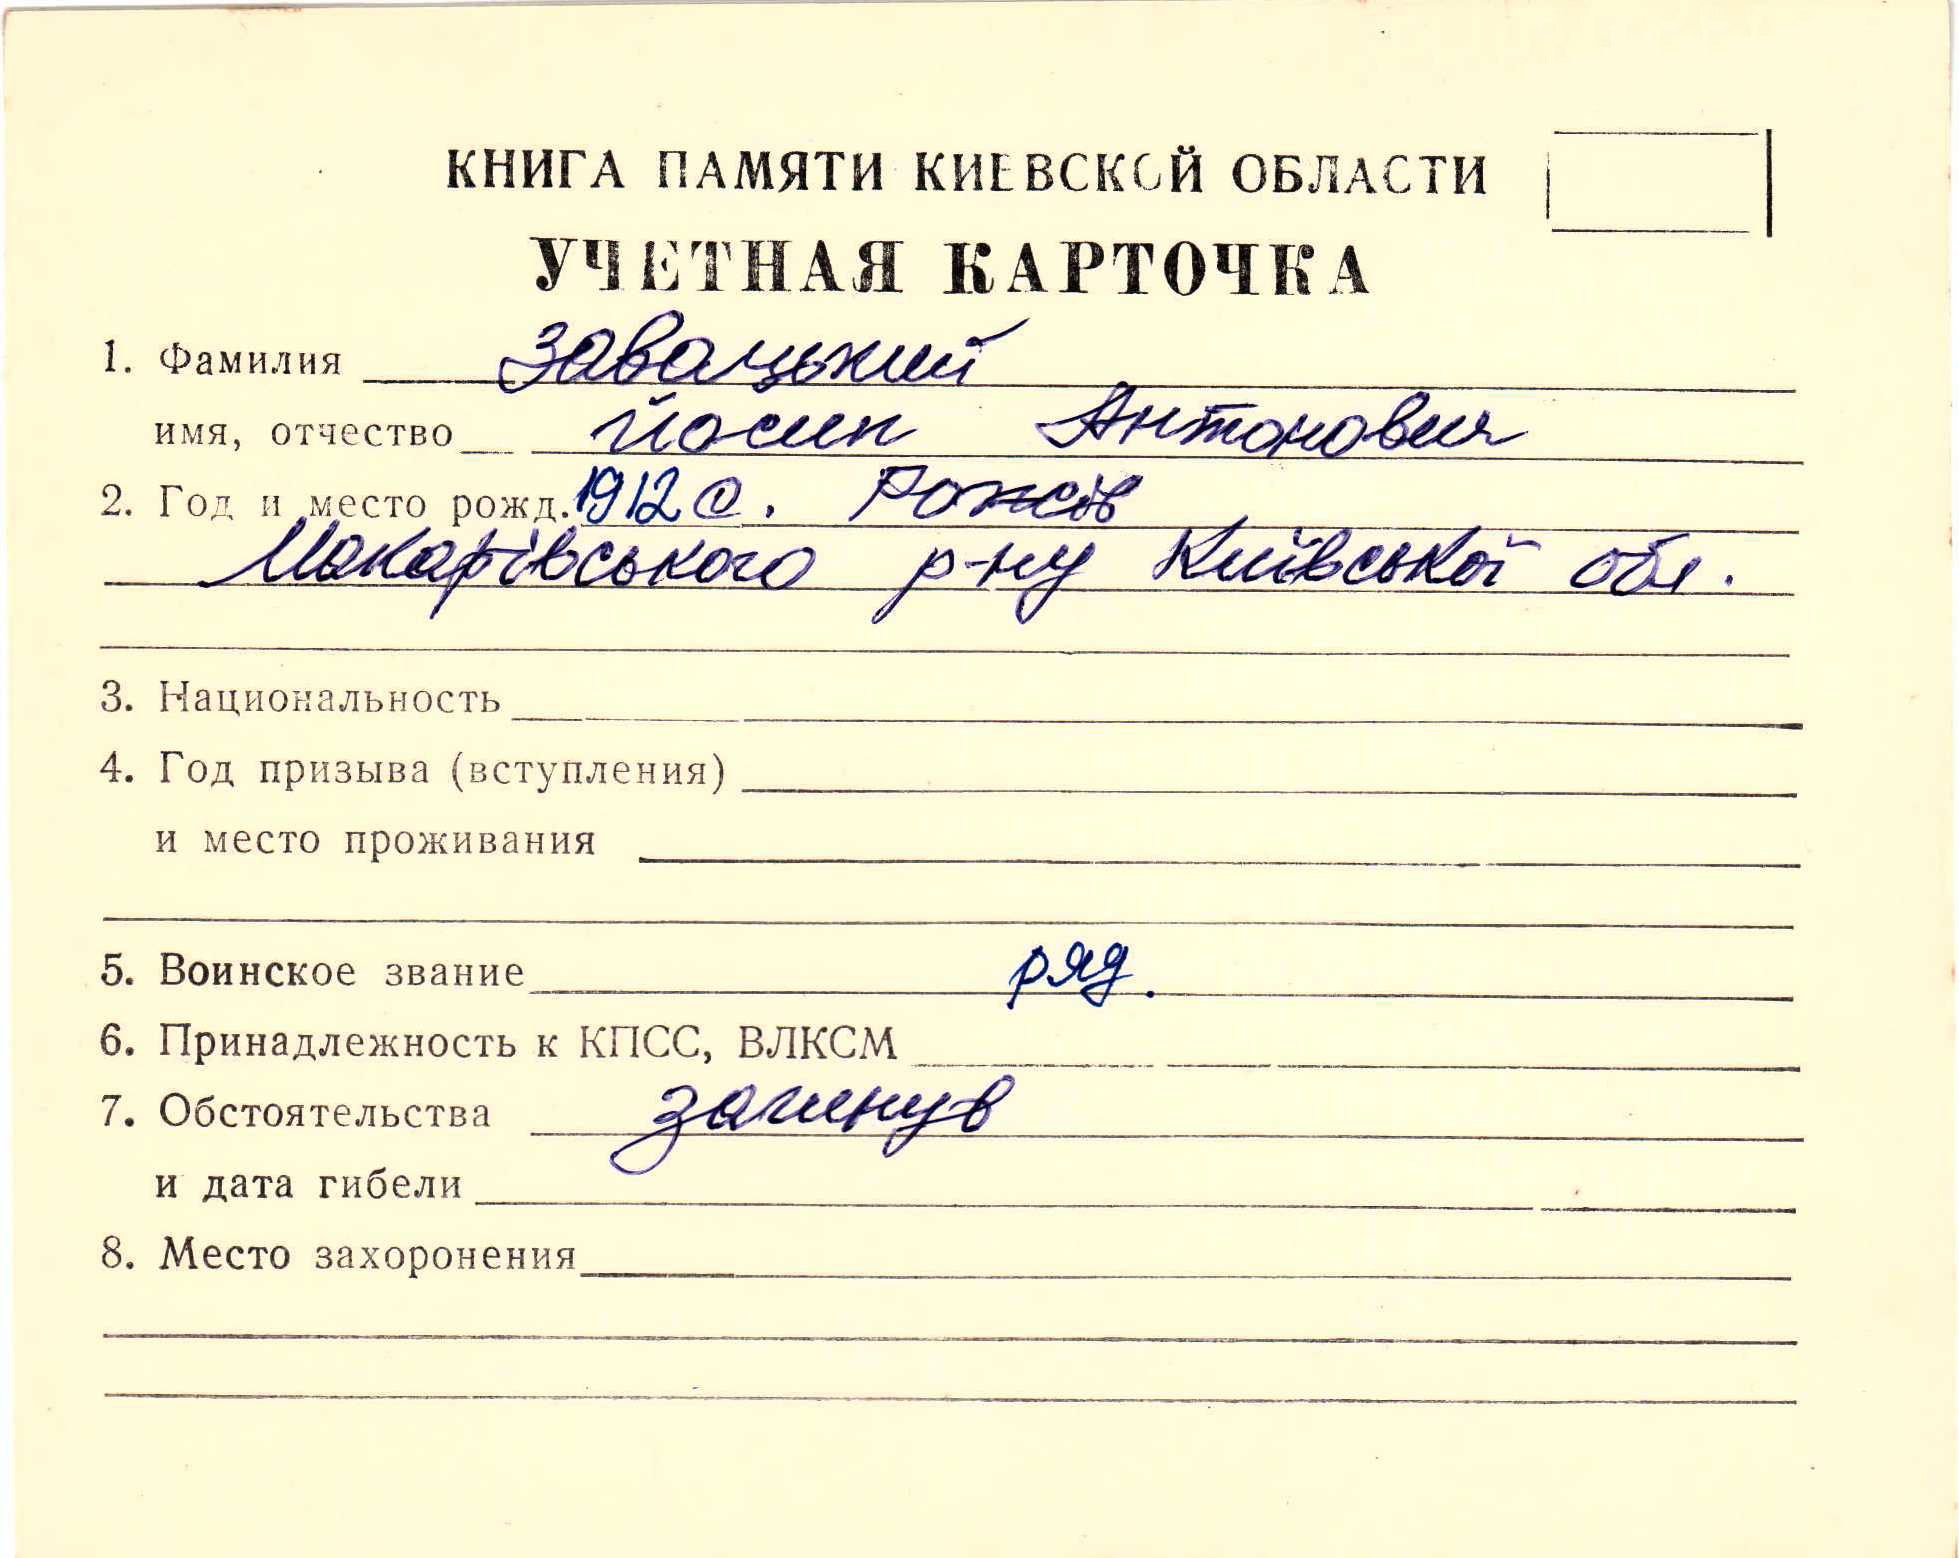 КНИГА ПАМЯТИ КИЕВСКОЙ ОБЛАСТИ
УЧЕТНАЯ КАРТОЧКА
1. Фамилия Завацький
имя, отчество Йосип Антонович
2. Год и место рожд. 1912 с. Рожів
Макарівського р-ну Київської обл.
3. Национальность
4. Год призыва (вступления)
и место проживания
5. Воинское звание ряд.
6. Принадлежность к КПСС, ВЛКСМ
7. Обстоятельства загинув
и дата гибели
8. Место захоронения